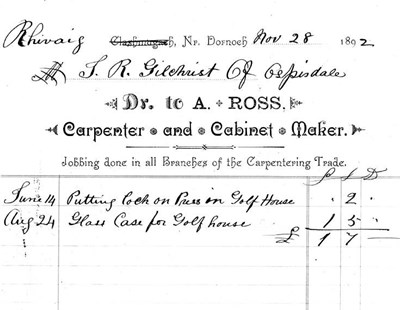 Rhivaig Clashmugach, Nr. Dornoch Nov 28 1892
T. R. Gilchrist Of Ospisdale
Dr. to A. ROSS.
Carpenter and Cabinet Maker.
Jobbing done in all Branches of the Carpentering Trade.
£ S D
June 14 Putting lock on Press in Golf House " 2 "
Aug 24 Glass Case for Golf house 1 5 "
£ 1 7 —